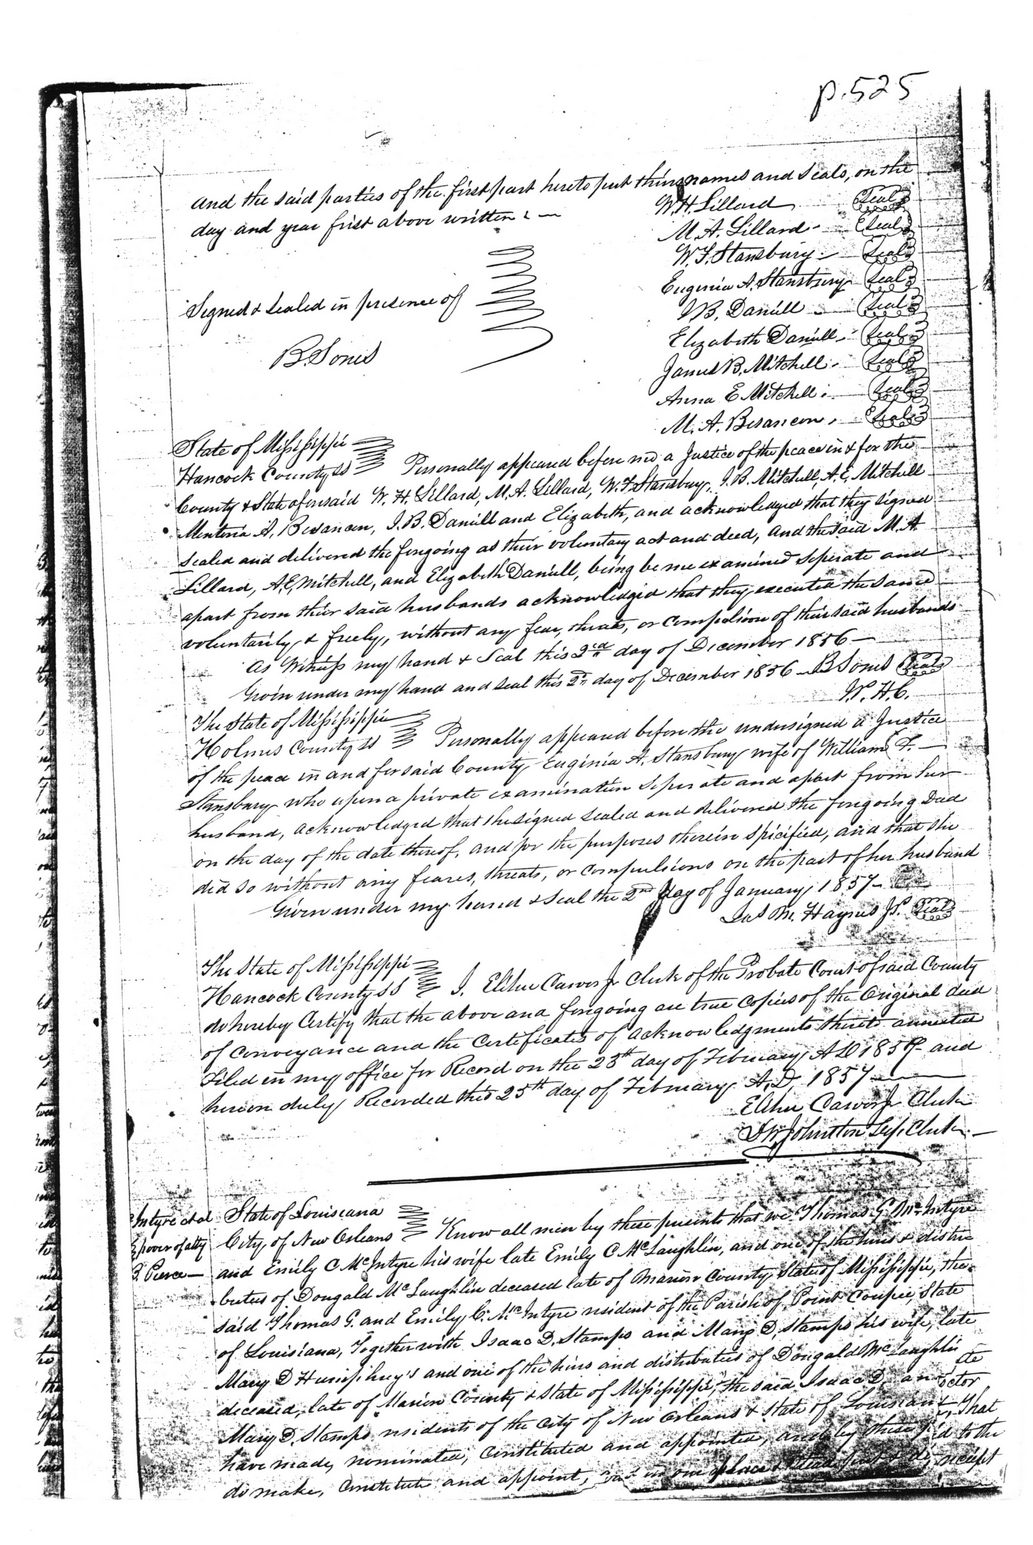 p.525
and the said parties of the first part hereto put their names and seals, on the
day and year first above written
W H Lillard Seal
M. A. Lillard Seal
W. F. Stansbury Seal
Eugenia A. Stansbury Seal
J B. Daniell Seal
Elizabeth Daniell Seal
James B. Mitchell Seal
Anna E Mitchell Seal
M. A. Besancon, Seal
Signed & Sealed in presence of
B. Sones
State of Mississippi
Hancock County SS Personally appeared before me a Justice of the peace in & for the
County & State aforesaid W. H. Lillard, M. A. Lillard, W. F. Stansbury, J. B. Mitchell, A. E. Mitchell
A, Besancon, J. B. Daniell and Elizabeth, and acknowledged that they signed
sealed and delivered the forgoing as their voluntary act and deed, and the said M. A
Lillard, A. E. Mitchell, and Elizabeth Daniell, being be me examined seperate and
apart from their said husbands acknowledgid that they executed the same
voluntarily & freely, without any fear, threat, or compulsion of their said husbands
As Witness my hand & Seal this 2nd day of December 1856
Given under my hand and seal this 2nd day of December 1856 B Sones Seal
The State of Mississippi
Holmes County SS Personally appeared before the undersigned a Justice
of the peace in and for said County Euginia A. Stansbury wife of William F.
Stansbury who upon a private examination seperate and apart from her
husband, acknowledged that she signed sealed and delivered the forgoing Deed
on the day of the date thereof, and for the purposes therein specified, and that she
did so without any feares, threats, or compulsions on the part of her husband
Given under my hand & seal the 2nd day of January 1857
Jas M. Haynes J.P. Seal
The State of Mississippi
Hancock County SS I, Elihu Carver Jr Clerk of the Probate Court of said County
do hereby Certify that the above and forgoing are true Copies of the Original deed
of conveyance and the Certificates of acknowledgments thereto annexed
Filed in my office for Record on the 23th day of February A D 1857 and
hereon duly Recorded this 25th day of February A. D, 1857
Elihu Carver Jr Clerk
Johnston Clerk
Intyre et al
power of atty
Pierce
State of Louisiana
City of New Orleans Know all men by these presents that we Thomas G. McIntyre
and Emily C McIntyre his wife late Emily C McLaughlin, and one of the heirs & distri
butes of Dongald McLaughlin deceased late of Marion County State of Mississippi, the
said Thomas G. and Emily C. McIntyre resident of the Parish of Point Coupee, State
of Louisiana, Together with Isaac D. Stamps and Mary D. Stamps his wife, late
Mary D Humphrey's and one of the heirs and distributees of Dongald McLaughlin
deceased, late of Marion County & State of Mississippi, the said Isaac D. and
Mary D. Stamps residents of the City of New Orleans & State of Louisiana
have made, nominated, constituted and appointed, and by these
do make, Constitute and appoint, in our place & stead